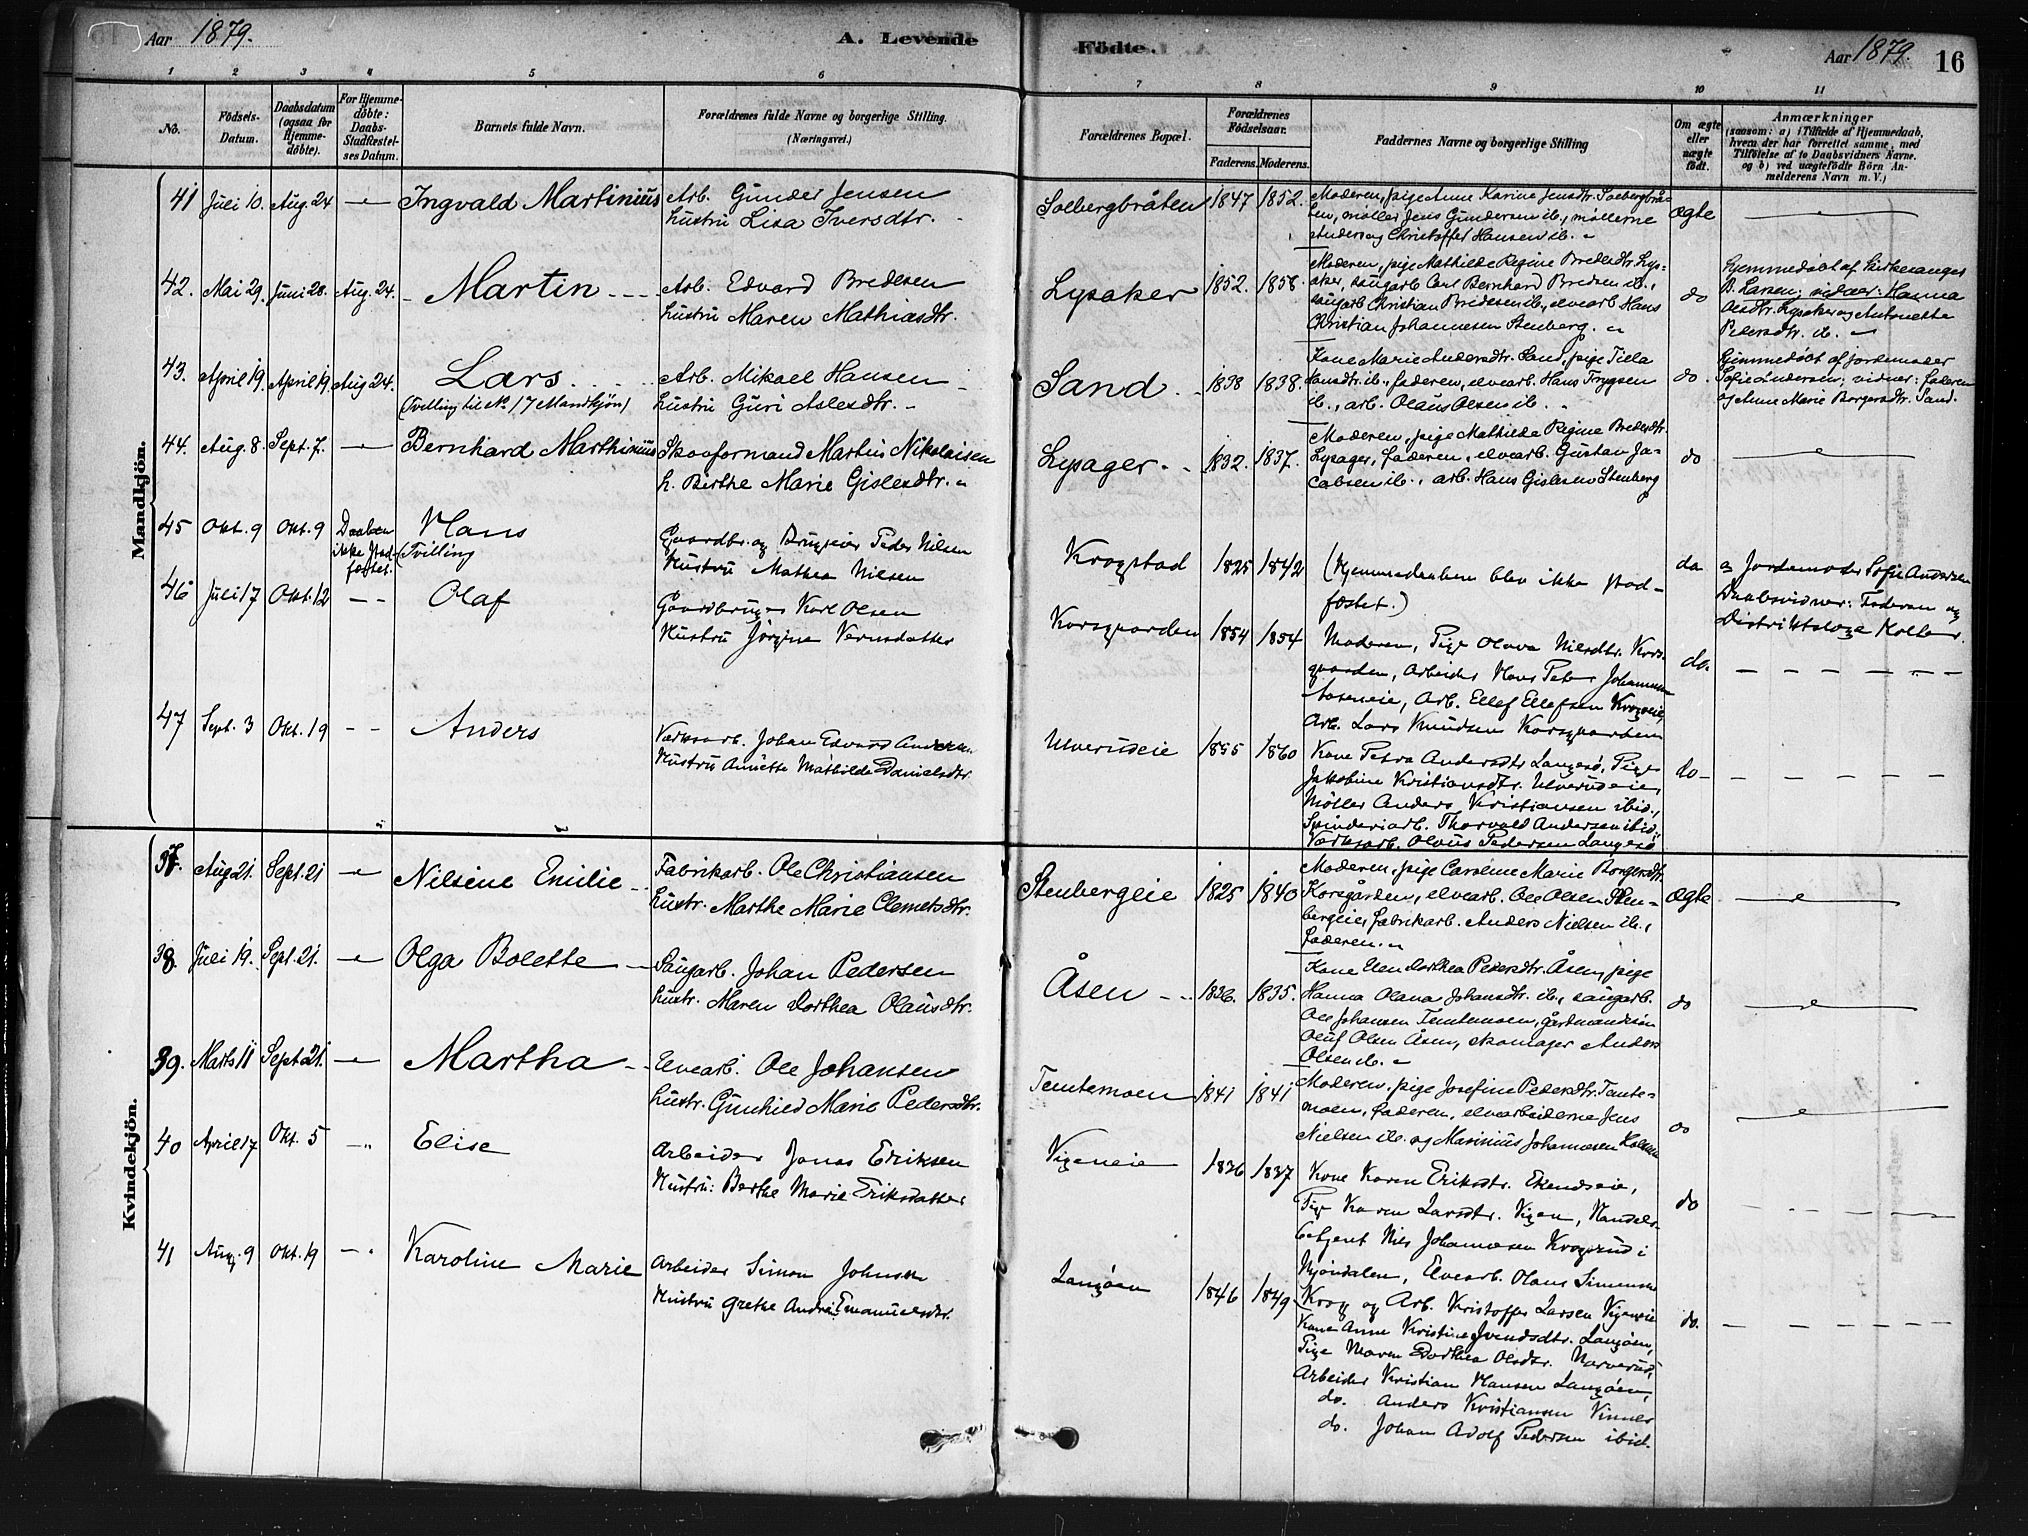 Aar 1879.
A. Levende
Födte.
Aar 1879.
16
1 2 3 4 5 6 7 8 9 10 11
No.
Födsels-
Datum.
Daabsdatum
(ogsaa for
Hjemme-
döbte).
For Hjemme-
döbte:
Daabs-
Stadfæstel-
ses Datum.
Barnets fulde Navn.
Forældrenes fulde Navne og borgerlige Stilling.
(Næringsvei.)
Forældrenes Bopæl.
Forældrenes
Födselsaar.
Faderens. Moderens.
Faddernes Navne og borgerlige Stilling
Om ægte
eller
uægte
född.
Anmærkninger
(saasom: a) i Tilfælde af Hjemmedaab,
hvem der har forrettet samme, med
Tilföielse af to Daabsvidners Navne.
og b) ved uægtefödte Börn An-
melderens Navn m. V.)
Mandkjön.
41 Juli 10. Aug. 24 Ingvald Martinius
Arb. Gunder Jensen
Hustru Lisa Iversdtr.
Solbergbråten 1847 1852.
Moderen, pige Anne Karine Jensdtr. Solbergbrå-
ten, møller Jens Gundersen ib., møllerne
Anders og Christoffer Hansen ib.
ægte
42. Mai 29. Juni 28. Aug. 24. Martin
Arb. Edvard Bredesen
Hustru Maren Mathiasdtr.
Lysaker 1852. 1858.
Moderen, pige Mathilde Regine Bredesdtr. Lys-
aker, saugarb. Carl Bernhard Bredesen ib.,
saugarb. Christian Bredesen ib., elvearb. Hans
Christian Johannesen Stenberg.
do
Hjemmedøbt af Kirkesanger
B. Larsen; vidner: Hanna
Olsdtr. Lysaker og Antonette
Pedersdtr. ib.
43. April 19. April 19. Aug 24. Lars
(Tvilling til No 17 Mandkjøn)
Arb. Mikael Hansen
Hustru Guri Aslesdtr.
Sand 1838 1838.
Kone Marie Andersdtr. Sand, pige Tilla
Hansdtr. ib., faderen, elvearb. Hans Trygsen
ib., arb. Olaus Olsen ib.
do.
Hjemmedøbt af Jordemoder
Sofie Andersen; vidner: faderen
og Anne Marie Borgersdtr. Sand.
44. Aug. 8 Sept. 7. Bernhard Marthinius
Skovformand Martin Nikolaisen
H. Berthe Marie Gislesdtr.
Lysager 1832. 1837.
Moderen, pige Mathilde Regine Bredesdtr.
Lysager, faderen, elvearb. Gustav Ja-
cobsen ib., arb. Hans Gislesen Stenberg
do
45 Okt. 9 Okt. 9 Daaben
ikke stad-
fæstet.
Hans
(Tvilling
Gaardbr. og Brugseier Peder Nilsen
Hustru Mathea Nilsen
Krogstad 1825 1842
(Hjemmedaaben blev ikke stad-
fæstet.)
do
a Jordemoder Sofie Andersen
Daabsvidner: Faderen og
Distriktslæge
46 Juli 17 Okt. 12 Olaf
Gaardbruger Karl Olsen
Hustru Jörgine Vernsdatter
Korsgaarden 1854 1854
Moderen, Pige Olava Nilsdtr. Kors-
gaarden, Arbeider Hans Peter Johannesen
Aaseneie, Arb. Ellef Ellefsen Krogeie,
Arb. Lars Knudsen Korsgaarden
do.
47 Sept. 3 Okt. 19 Anders
Værksarb. Johan Edvard Andersen.
Hustru Annette Mathilde Danielsdtr.
Ulverudeie 1855 1860
Kone Petra Andersdtr. Langesö, Pige
Jakobine Kristiansdtr. Ulverudeie,
Möller Anders Kristiansen ibid.,
Spinderiarb. Thorvald Andersen ibid.,
Værksarb. Olaus Pedersen Langesö
do
Kvindekjön.
37. Aug 21. Sept. 21 Nilsine Emilie
Fabrikarb. Ole Christiansen
Hustr. Marthe Marie Clemetsdtr.
Stenbergeie 1825 1840
Moderen, pige Caroline Marie Borgersdtr.
Korsgården, elvearb. Ole Olsen Sten-
bergeie, fabrikarb. Anders Nielsen ib.,
faderen.
ægte
38. Juli 19. Sept. 21. Olga Bolette
Saugarb. Johan Pedersen
Hustr. Maren Dorthea Olausdtr.
Åsen 1836. 1835.
Kone Elen Dorthea Pedersdtr. Åsen, pige
Hanna Olava Johansdtr. ib., saugarb.
Ole Johansen Temtemoen, gårdmandssön
Oluf Olsen Åsen, skomager Anders
Olsen ib.
do
39. Marts 11 Sept 21. Martha
Elvearb. Ole Johansen
Hustr. Gunhild Marie Pedersdtr.
Temtemoen 1841 1841
Moderen, pige Josefine Pedersdtr. Temte-
moen, faderen, elvearbeiderne Jens
Nielsen ib. og Marinius Johannesen
do
40 April 17 Okt. 5 Elise
Arbeider Jonas Eriksen
Hustru: Berthe Marie Eriksdatter
Vigeneie 1836 1837
Kone Karen Eriksdtr. Ekendseie,
Pige Karen Larsdtr. Vigen, Handels-
betjent Nils Johannesen Krogsrud i
Mjöndalen, Elvearb. Hans Simensen
Krog og Arb. Kristoffer Larsen Vigeneie
do
41 Aug. 9 Okt. 19 Karoline Marie
Arbeider Simon Johnsen
Hustru Grethe Andrea Emanuelsdtr.
Langöen 1846 1849
Kone Anne Kristine Svendsdtr. Langöen,
Pige Maren Dorthea Olsdtr. Narverud,
Arbeider Kristian Hansen Langöen,
do. Anders Kristiansen Vinnes
do. Johan Adolf Pedersen ibid.
do.